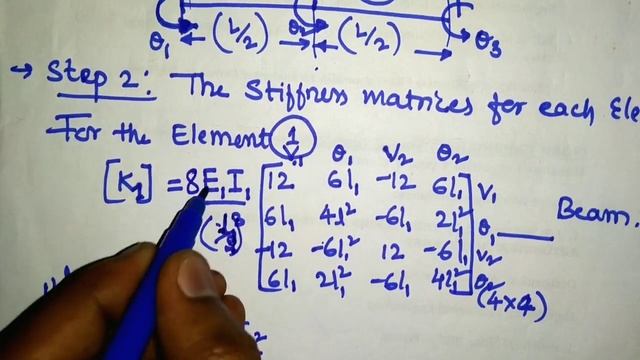 θ₁ (L/2) θ₂ (L/2) θ₃
→ Step 2: The Stiffness matrices for each Ele
For the Element 1
θ₁ V₂ θ₂
[K₁] = 8E₁I₁ 12 6l₁ -12 6l₁ V₁
6l₁ 4l₁² -6l₁ 2l₁² θ₁ Beam.
-12 -6l₁² 12 -6l₁ V₂
6l₁ 2l₁² -6l₁ 4l₁² θ₂
(4×4)